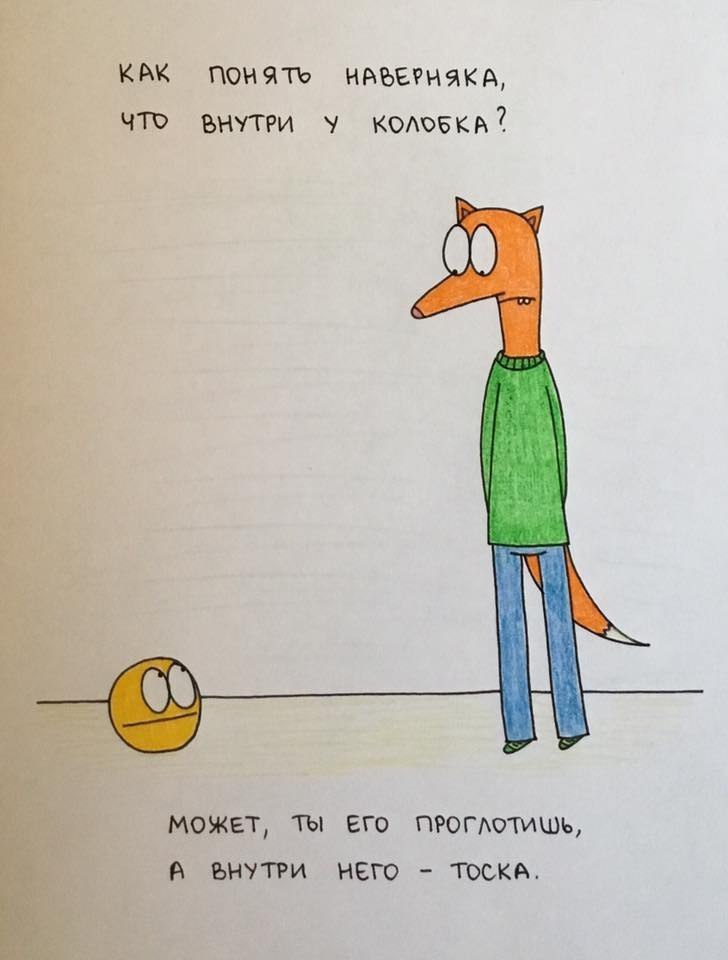 КАК ПОНЯТЬ НАВЕРНЯКА,
ЧТО ВНУТРИ У КОЛОБКА?
МОЖЕТ, ТЫ ЕГО ПРОГЛОТИШЬ,
А ВНУТРИ НЕГО - ТОСКА.